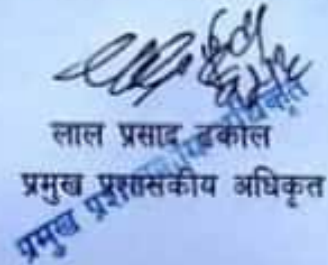 लाल प्रसाद ढकाल
प्रमुख प्रशासकीय अधिकृत
प्रमुख प्रशासकीय अधिकृत